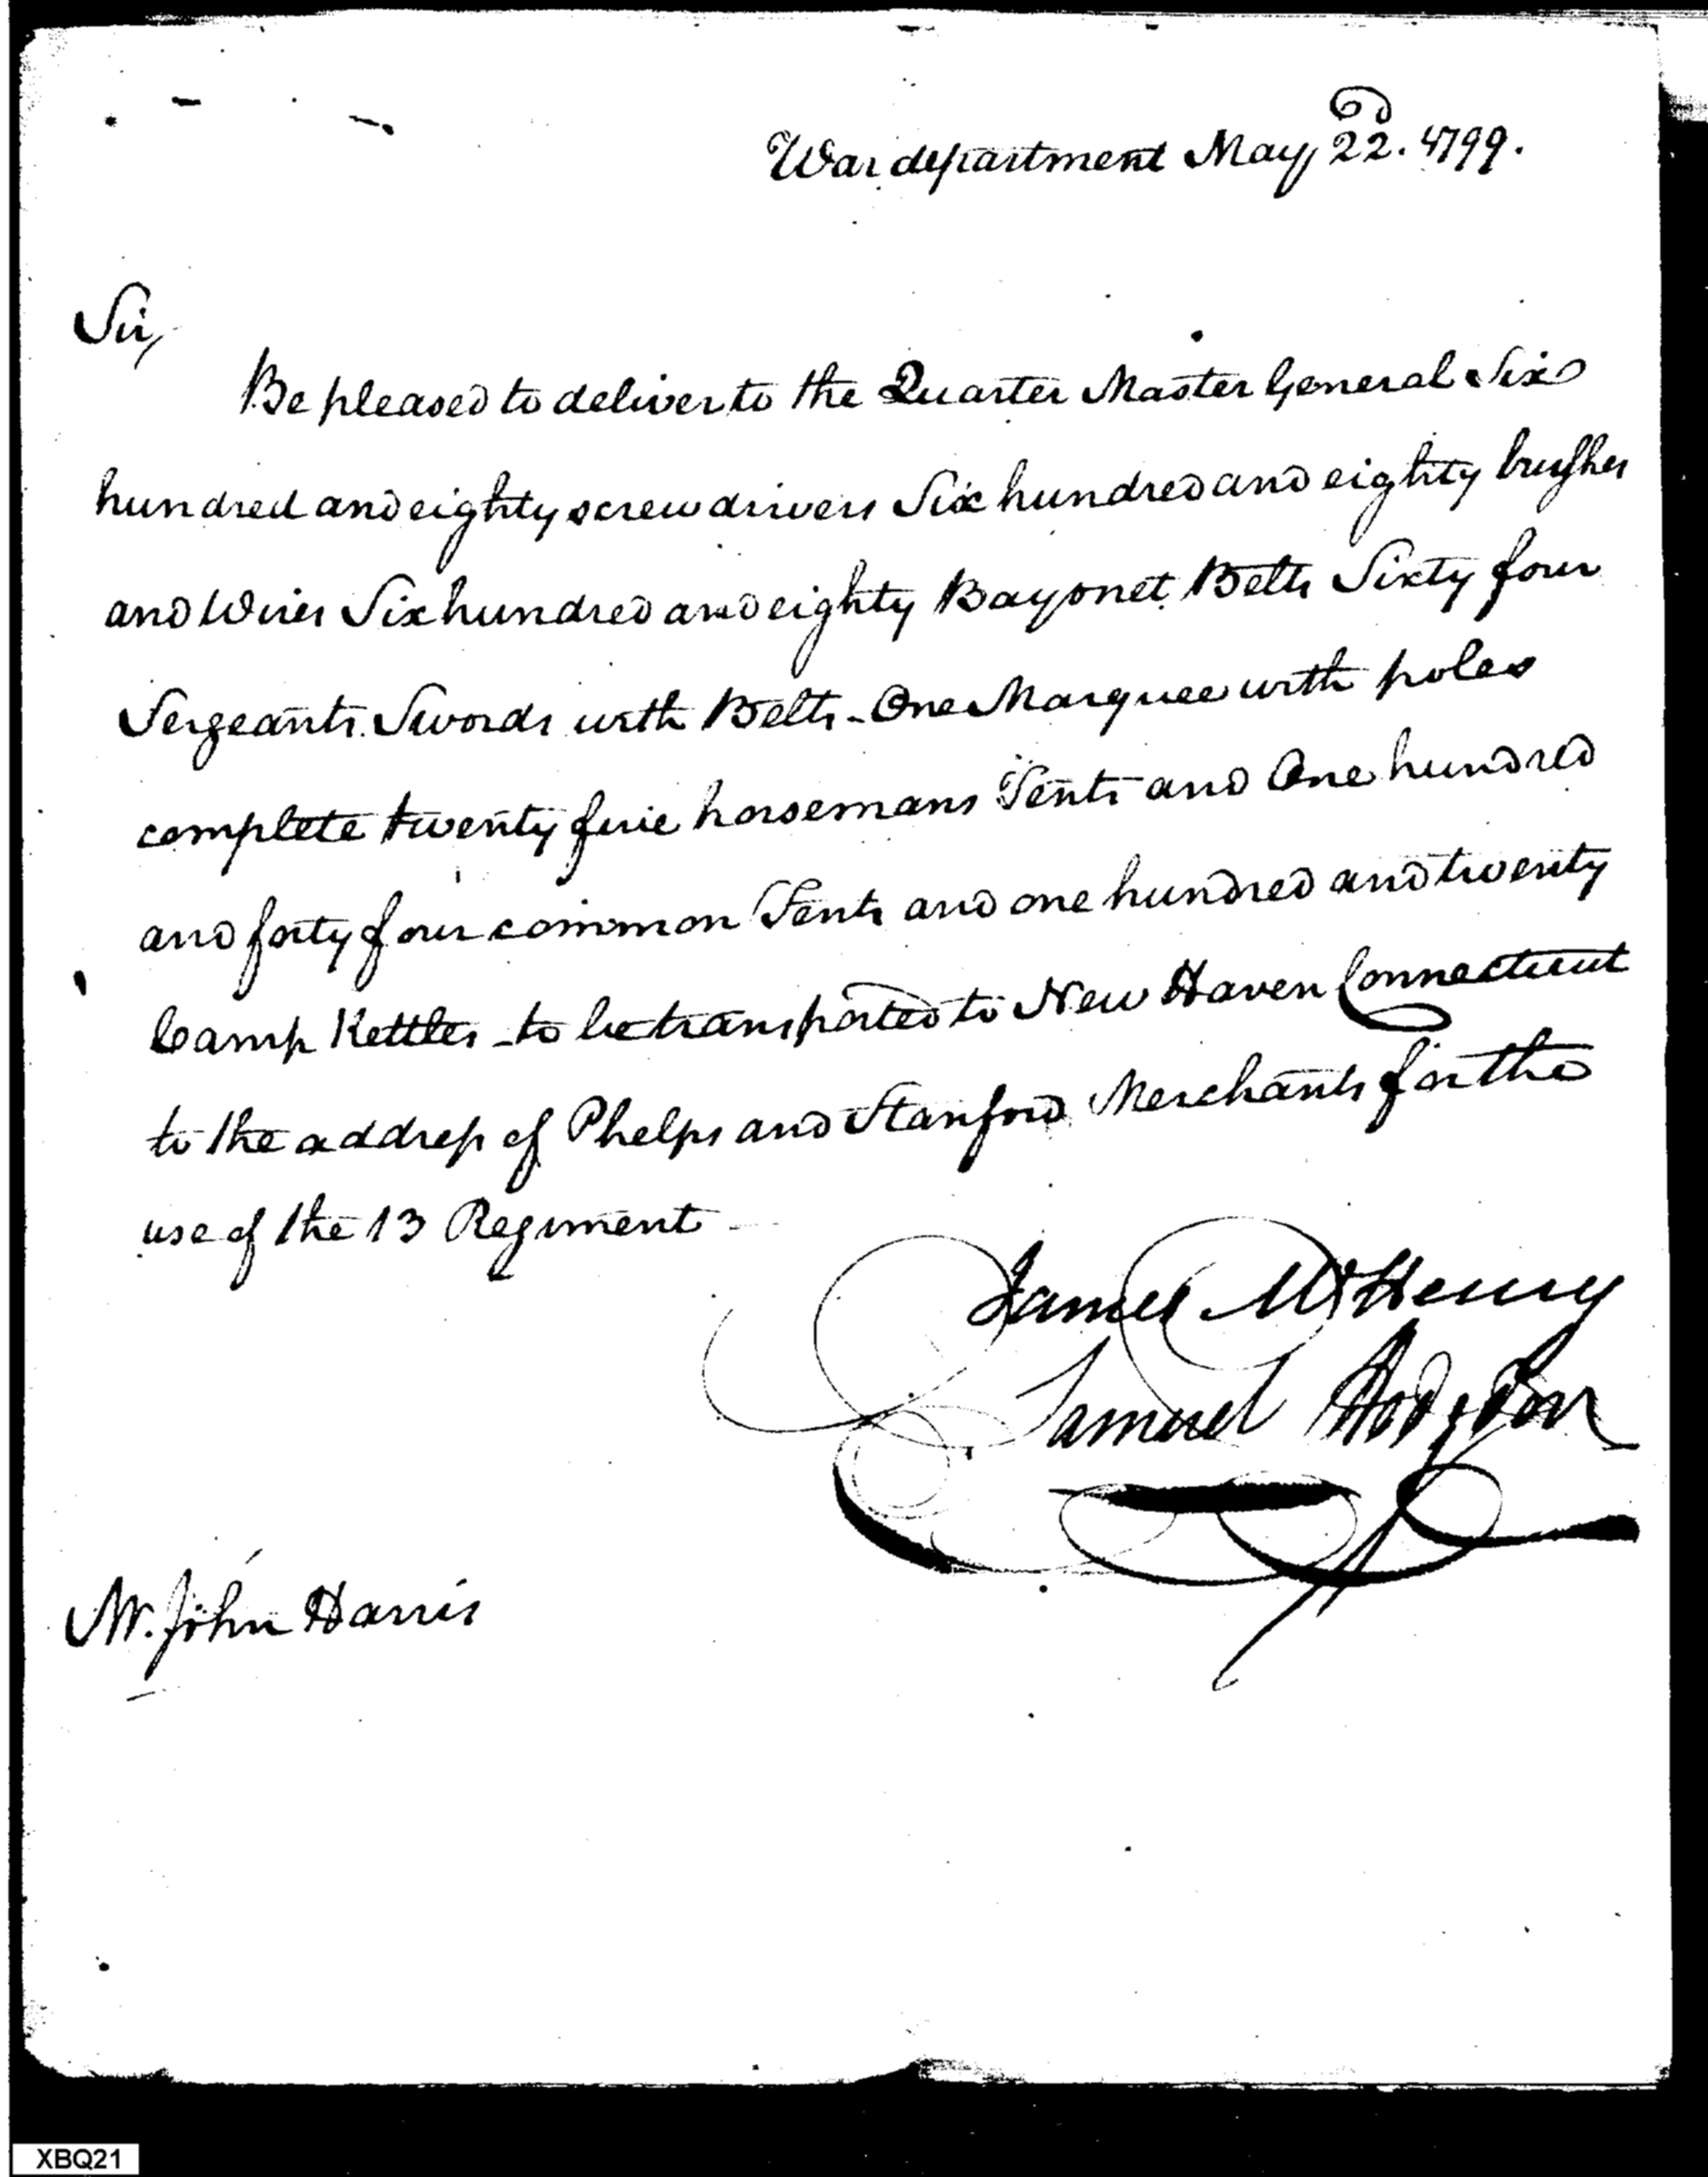 War department May 22d. 1799.
Sir,
Be pleased to deliver to the Quarter Master General Six
hundred and eighty screw drivers Six hundred and eighty brushes
and Wires Six hundred and eighty Bayonet Belts Sixty four
Sergeants Swords with Belts - One Marquee with poles
complete twenty five horsemans Tents and One hundred
and forty four common Tents and one hundred and twenty
Camp Kettles - to be transported to New Haven Connecticut
to the address of Phelps and Stanford Merchants for the
use of the 13 Regiment -
James McHenry
Samuel Hodgdon
Mr. John Harris
XBQ21